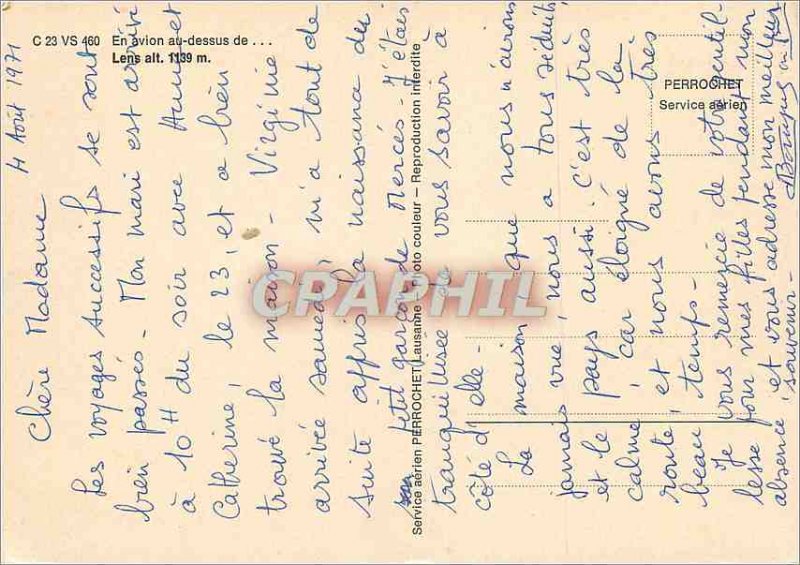 C 23 VS 460 En avion au-dessus de . . .
Lens alt. 1139 m.
PERROCHET
Service aérien
Service aérien PERROCHET Lausanne – Photo couleur – Reproduction interdite
CPAPHIL
4 Août 1971
Chère Madame
Les voyages successifs se sont
bien passés - Mon mari est arrivé
à 10 H du soir avec Anne et
Catherine, le 23, et a bien
trouvé la maison - Virginie
arrivée samedi, m'a tout de
suite appris la naissance du
petit garçon de Mercès - J'étais
tranquillisée de vous savoir à
côté d'elle -
La maison, que nous n'avions
jamais vue, nous a tous séduits
et le pays aussi. C'est très
calme, car éloigné de la
route, et nous avons très
beau temps -
Je vous remercie de votre gentil-
lesse pour mes filles pendant mon
absence et vous adresse mon meilleur
souvenir -